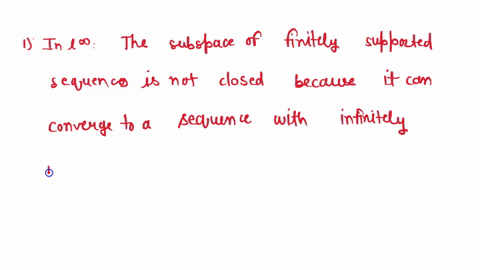 1) In l∞: The subspace of finitely supported
sequences is not closed because it can
converge to a sequence with infinitely